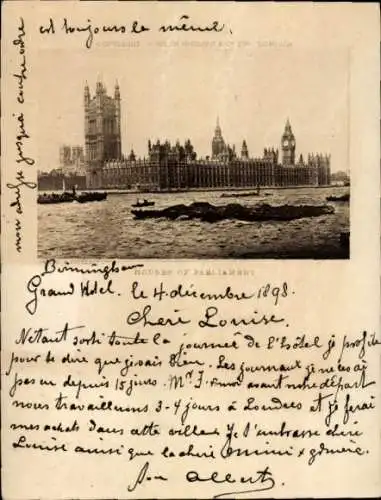 est toujours le même
mon adresse jusqu'à contre ordre
HOUSES OF PARLIAMENT
Birmingham
Grand Hotel. le 4 décembre 1898.
Chère Louise.
N'étant sorti toute la journée de l'hôtel je profite
pour te dire que je vais bien. Les journaux je ne les ai
pas eu depuis 15 jours. Mr J. avant notre départ
nous travaillerons 3-4 jours à Londres et je ferai
mes achats dans cette ville. Je t'embrasse chère
Louise ainsi que la chère
ton Albert